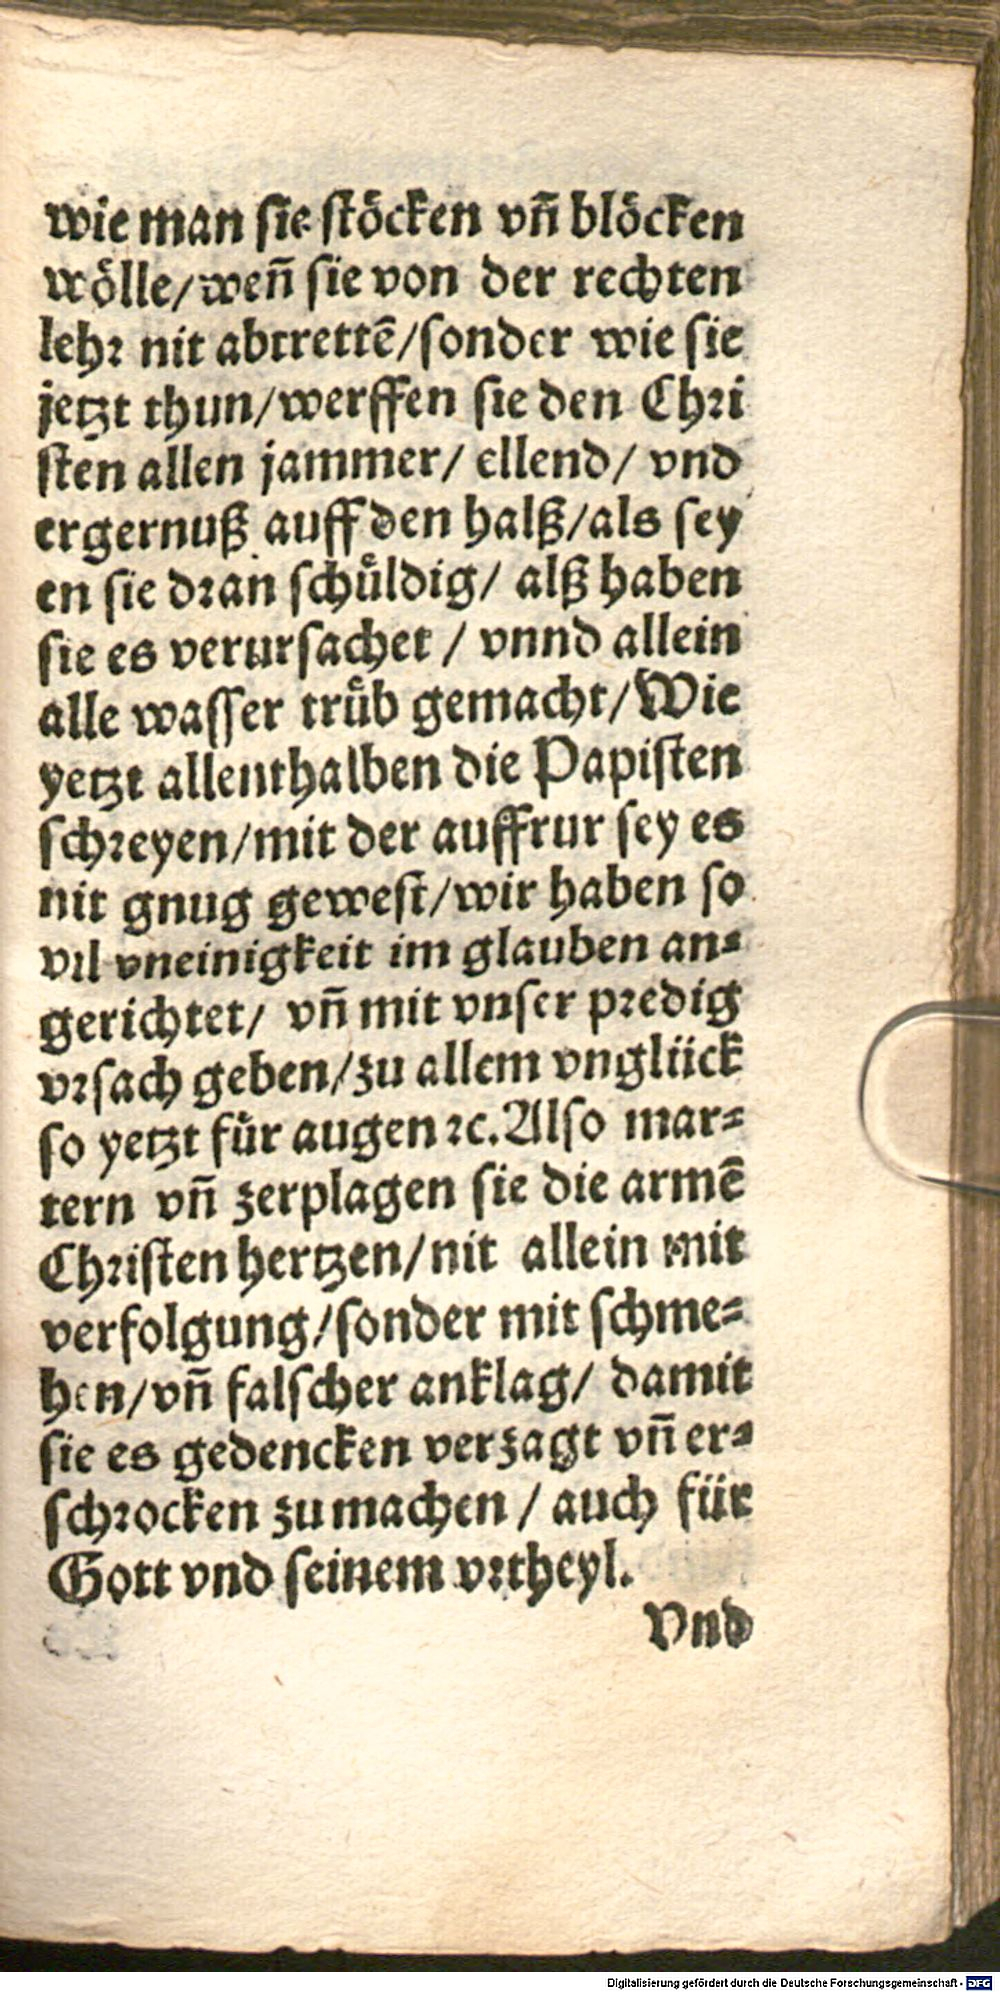 wie man sie stöcken vñ blöcken
wölle/weñ sie von der rechten
lehr nit abtrettē/sonder wie sie
jetzt thun/werffen sie den Chri
sten allen jammer/ ellend/ vnd
ergernuß auff den halß/als sey
en sie dran schůldig/ alß haben
sie es verursachet / vnnd allein
alle wasser trůb gemacht/Wie
yetzt allenthalben die Papisten
schreyen/mit der auffrur sey es
nit gnug gewest/wir haben so
vil vneinigkeit im glauben an⸗
gerichtet/ vñ mit vnser predig
vrsach geben/zu allem vnglück
so yetzt für augen ꝛc. Also mar⸗
tern vñ zerplagen sie die armē
Christen hertzen/nit allein mit
verfolgung/sonder mit schme⸗
hen/vñ falscher anklag/ damit
sie es gedencken verzagt vñ er⸗
schrocken zu machen / auch für
Gott vnd seinem vrtheyl.
Vnd
Digitalisierung gefördert durch die Deutsche Forschungsgemeinschaft - DFG